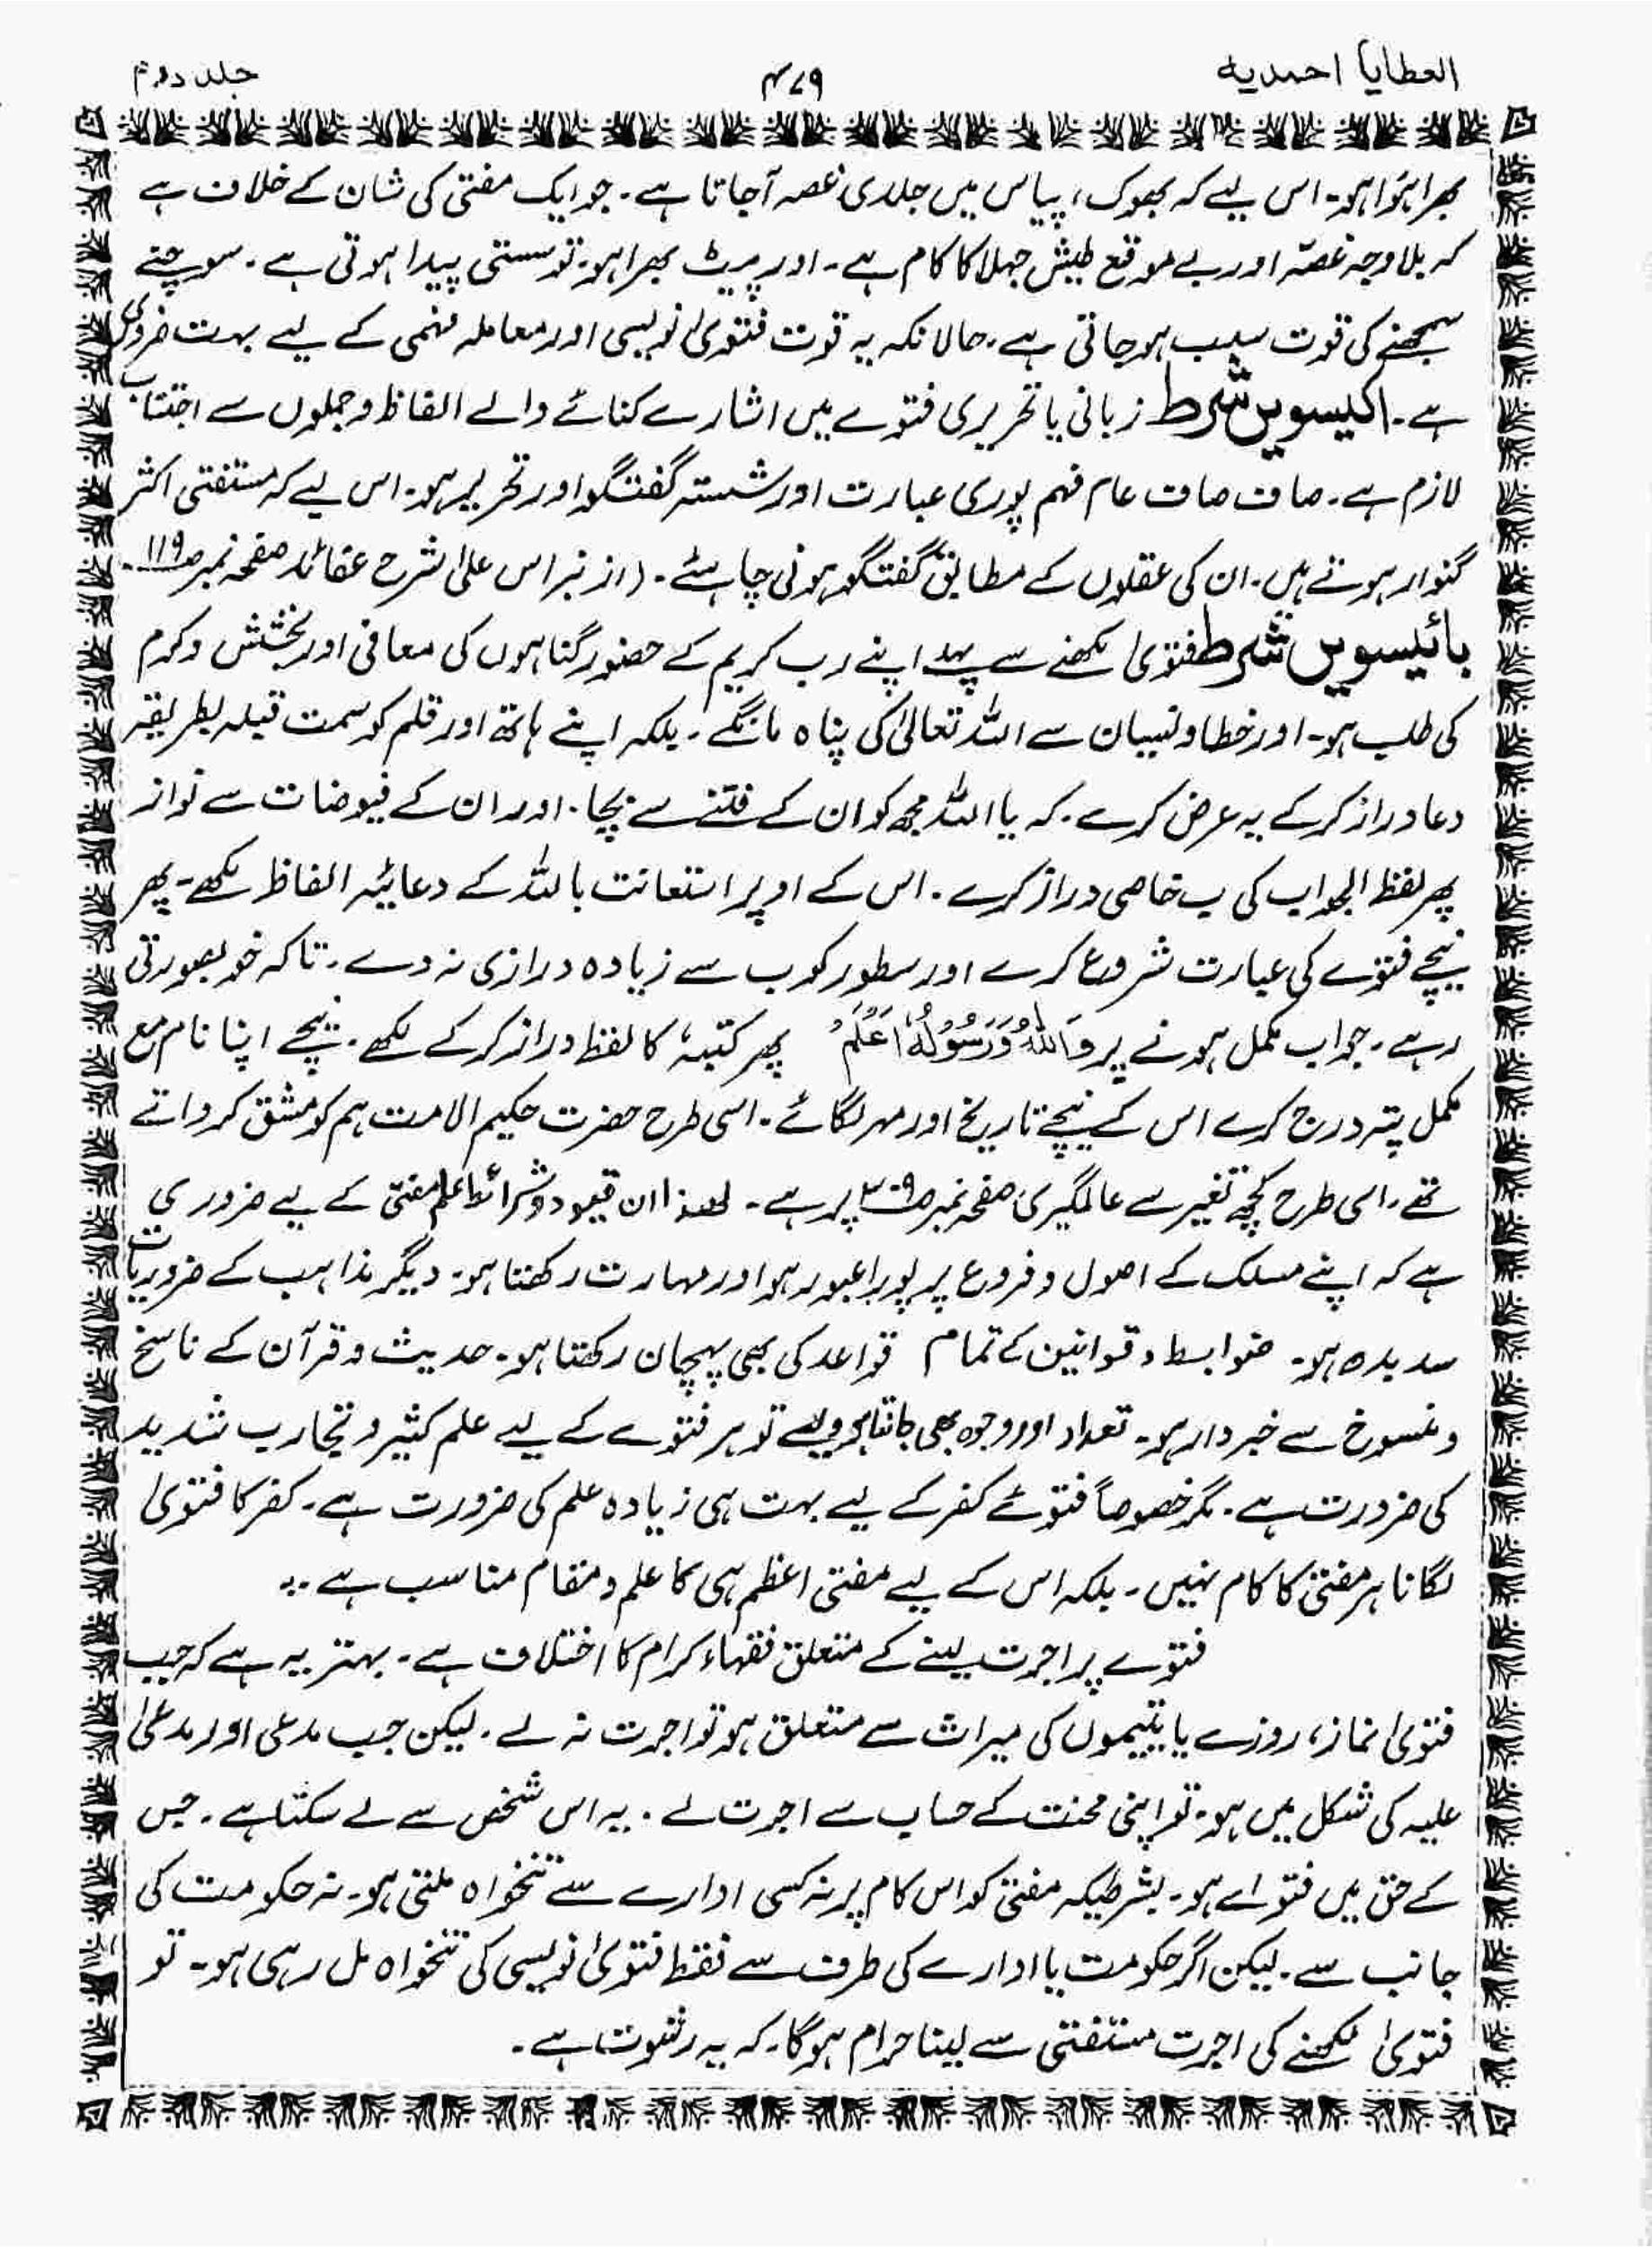 العطایا احمدیہ
۴۷۹
جلد دوم
بھرا ہوا ہو۔ اس لیے کہ بھوک، پیاس میں جلدی غصہ آجاتا ہے۔ جو ایک مفتی کی شان کے خلاف ہے
کہ بلا وجہ غصّہ اور بے موقع طیش جہلا کا کام ہے۔ اور پیٹ بھرا ہو۔ تو سستی پیدا ہوتی ہے۔ سوچنے
سمجھنے کی قوت سلب ہوجاتی ہے۔ حالانکہ یہ قوت فتویٰ نویسی اور معاملہ فہمی کے لیے بہت ضروری
ہے۔ اکیسویں شرط زبانی یا تحریری فتوے میں اشارے کنائے والے الفاظ و جملوں سے اجتناب
لازم ہے۔ صاف صاف عام فہم پوری عبارت اور شستہ گفتگو اور تحریر ہو۔ اس لیے کہ مستفتی اکثر
گنوار ہوتے ہیں۔ ان کی عقلوں کے مطابق گفتگو ہونی چاہئے۔ (از نبراس علیٰ شرح عقائد صفحہ نمبر ص۱۱۹۔
بائیسویں شرط فتویٰ لکھنے سے پہلے اپنے رب کریم کے حضور گناہوں کی معافی اور بخشش و کرم
کی طلب ہو۔ اور خطا و نسیان سے اللہ تعالیٰ کی پناہ مانگے۔ بلکہ اپنے ہاتھ اور قلم کو سمت قبلہ بطریقہ
دعا دراز کرکے یہ عرض کرے۔ کہ یا اللہ مجھ کو ان کے فتنے سے بچا۔ اور ان کے فیوضات سے نواز
پھر لفظ الجواب کی ب خاصی دراز کرے۔ اس کے اوپر استعانت باللہ کے دعائیہ الفاظ لکھے۔ پھر
نیچے فتوے کی عبارت شروع کرے اور سطور کو ب سے زیادہ درازی نہ دے۔ تاکہ خوبصورتی
رہے۔ جواب مکمل ہونے پر وَاللهُ وَرَسُوْلُهٗ اَعْلَمُ پھر کتبہٗ کا لفظ دراز کرکے لکھے۔ نیچے اپنا نام مع
مکمل پتہ درج کرے اس کے نیچے تاریخ اور مہر لگائے۔ اسی طرح حضرت حکیم الامت ہم کو مشق کرواتے
تھے۔ اسی طرح کچھ تغیر سے عالمگیری صفحہ نمبر ص۳۰۹ پر ہے۔ لھذا ان قیود و شرائط علم مفتی کے لیے ضروری
ہے کہ اپنے مسلک کے اصول و فروع پر پورا عبور ہو اور مہارت رکھتا ہو۔ دیگر مذاہب کے ضروریات
سدیدہ ہو۔ ضوابط و قوانین کے تمام قواعد کی بھی پہچان رکھتا ہو۔ حدیث و قرآن کے ناسخ
و منسوخ سے خبردار ہو۔ تعداد اور وجوہ بھی جانتا ہو ویسے تو ہر فتوے کے لیے علم کثیر و تجارب شدید
کی ضرورت ہے۔ مگر خصوصاً فتوئے کفر کے لیے بہت ہی زیادہ علم کی ضرورت ہے۔ کفر کا فتویٰ
لگانا ہر مفتی کا کام نہیں۔ بلکہ اس کے لیے مفتی اعظم ہی کا علم و مقام مناسب ہے ۔
فتوے پر اجرت لینے کے متعلق فقہاء کرام کا اختلاف ہے۔ بہتر یہ ہے کہ جب
فتویٰ نماز، روزے یا یتیموں کی میراث سے متعلق ہو تو اجرت نہ لے۔ لیکن جب مدعی اور مدعیٰ
علیہ کی شکل میں ہو۔ تو اپنی محنت کے حساب سے اجرت لے۔ یہ اس شخص سے لے سکتا ہے۔ جس
کے حق میں فتواے ہو۔ بشرطیکہ مفتی کو اس کام پر نہ کسی ادارے سے تنخواہ ملتی ہو۔ نہ حکومت کی
جانب سے۔ لیکن اگر حکومت یا ادارے کی طرف سے فقط فتویٰ نویسی کی تنخواہ مل رہی ہو۔ تو
فتویٰ لکھنے کی اجرت مستفتی سے لینا حرام ہوگا۔ کہ یہ رشوت ہے۔